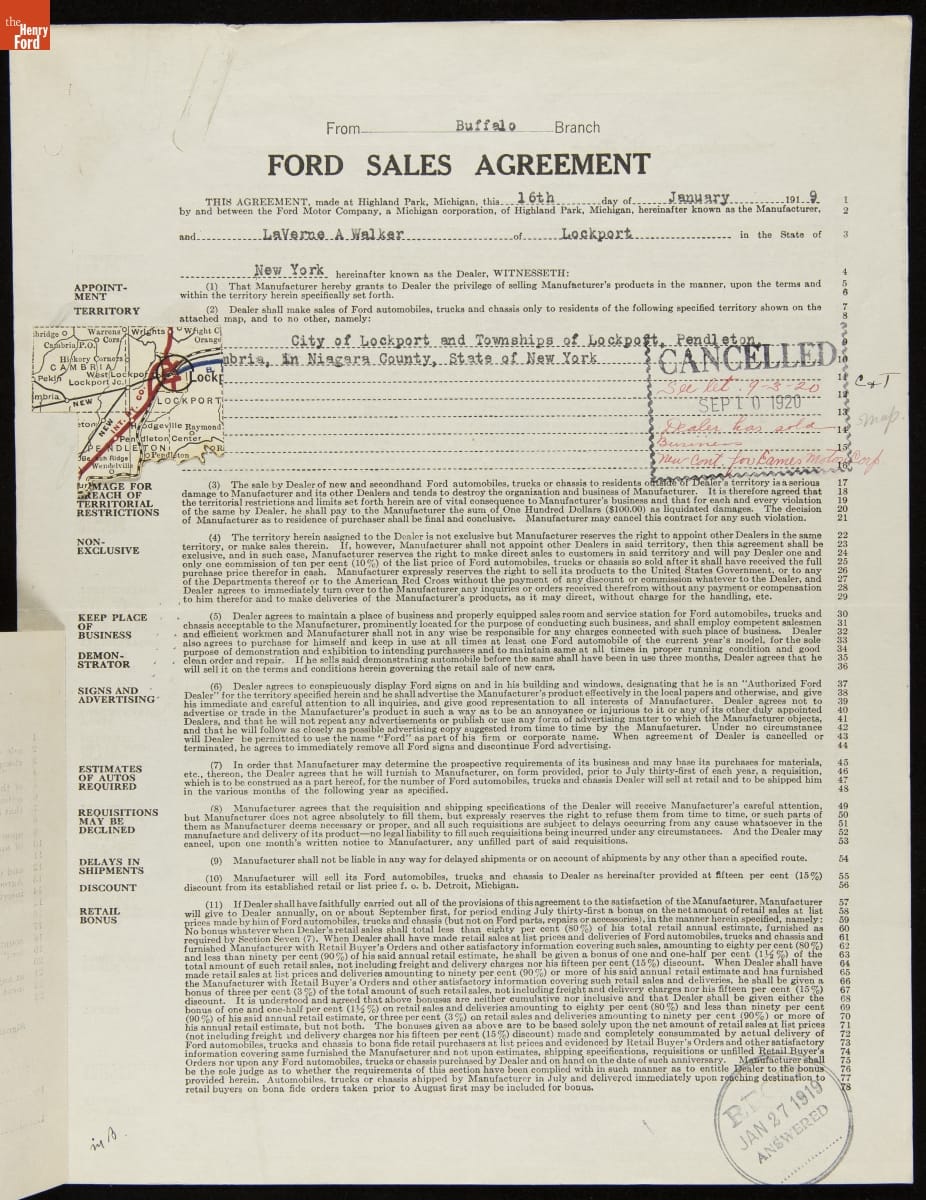 the
Henry
Ford
From Buffalo Branch
FORD SALES AGREEMENT
THIS AGREEMENT, made at Highland Park, Michigan, this 16th day of January 191 9 1
by and between the Ford Motor Company, a Michigan corporation, of Highland Park, Michigan, hereinafter known as the Manufacturer, 2
and LaVerne A Walker of Lockport in the State of 3
New York hereinafter known as the Dealer, WITNESSETH: 4
APPOINT-
MENT
(1) That Manufacturer hereby grants to Dealer the privilege of selling Manufacturer's products in the manner, upon the terms and 5
within the territory herein specifically set forth. 6
TERRITORY
(2) Dealer shall make sales of Ford automobiles, trucks and chassis only to residents of the following specified territory shown on the 7
attached map, and to no other, namely: 8
City of Lockport and Townships of Lockport, Pendleton 9
mbria, in Niagara County, State of New York 10
11
12
13
14
15
16
bridge
Warrens
Wrights
Wright C
Cambria P.O.
Corn
Orange
Hickory Corners
CAMBRIA
West Lockport
Pekin
Lockport Jc.
Lockp
mbria
NEW
LOCKPORT
NEW
INT. RY. CO.
Hodgeville
Raymond
Pendleton Center
PENDLETON
Beach Ridge
Pendleton
Wendelville
CANCELLED
See let. 9-3-20
SEP 10 1920
Dealer has sold
Business
New Cont. for Eames Motor Corp
C & T
map.
DAMAGE FOR
BREACH OF
TERRITORIAL
RESTRICTIONS
(3) The sale by Dealer of new and secondhand Ford automobiles, trucks or chassis to residents outside of Dealer's territory is a serious 17
damage to Manufacturer and its other Dealers and tends to destroy the organization and business of Manufacturer. It is therefore agreed that 18
the territorial restrictions and limits set forth herein are of vital consequence to Manufacturer's business and that for each and every violation 19
of the same by Dealer, he shall pay to the Manufacturer the sum of One Hundred Dollars ($100.00) as liquidated damages. The decision 20
of Manufacturer as to residence of purchaser shall be final and conclusive. Manufacturer may cancel this contract for any such violation. 21
NON-
EXCLUSIVE
(4) The territory herein assigned to the Dealer is not exclusive but Manufacturer reserves the right to appoint other Dealers in the same 22
territory, or make sales therein. If, however, Manufacturer shall not appoint other Dealers in said territory, then this agreement shall be 23
exclusive, and in such case, Manufacturer reserves the right to make direct sales to customers in said territory and will pay Dealer one and 24
only one commission of ten per cent (10%) of the list price of Ford automobiles, trucks or chassis so sold after it shall have received the full 25
purchase price therefor in cash. Manufacturer expressly reserves the right to sell its products to the United States Government, or to any 26
of the Departments thereof or to the American Red Cross without the payment of any discount or commission whatever to the Dealer, and 27
Dealer agrees to immediately turn over to the Manufacturer any inquiries or orders received therefrom without any payment or compensation 28
to him therefor and to make deliveries of the Manufacturer's products, as it may direct, without charge for the handling, etc. 29
KEEP PLACE
OF
BUSINESS
DEMON-
STRATOR
(5) Dealer agrees to maintain a place of business and properly equipped sales room and service station for Ford automobiles, trucks and 30
chassis acceptable to the Manufacturer, prominently located for the purpose of conducting such business, and shall employ competent salesmen 31
and efficient workmen and Manufacturer shall not in any wise be responsible for any charges connected with such place of business. Dealer 32
also agrees to purchase for himself and keep in use at all times at least one Ford automobile of the current year's model, for the sole 33
purpose of demonstration and exhibition to intending purchasers and to maintain same at all times in proper running condition and good 34
clean order and repair. If he sells said demonstrating automobile before the same shall have been in use three months, Dealer agrees that he 35
will sell it on the terms and conditions herein governing the retail sale of new cars. 36
SIGNS AND
ADVERTISING
(6) Dealer agrees to conspicuously display Ford signs on and in his building and windows, designating that he is an "Authorized Ford 37
Dealer" for the territory specified herein and he shall advertise the Manufacturer's product effectively in the local papers and otherwise, and give 38
his immediate and careful attention to all inquiries, and give good representation to all interests of Manufacturer. Dealer agrees not to 39
advertise or trade in the Manufacturer's product in such a way as to be an annoyance or injurious to it or any of its other duly appointed 40
Dealers, and that he will not repeat any advertisements or publish or use any form of advertising matter to which the Manufacturer objects, 41
and that he will follow as closely as possible advertising copy suggested from time to time by the Manufacturer. Under no circumstance 42
will Dealer be permitted to use the name "Ford" as part of his firm or corporate name. When agreement of Dealer is cancelled or 43
terminated, he agrees to immediately remove all Ford signs and discontinue Ford advertising. 44
ESTIMATES
OF AUTOS
REQUIRED
(7) In order that Manufacturer may determine the prospective requirements of its business and may base its purchases for materials, 45
etc., thereon, the Dealer agrees that he will furnish to Manufacturer, on form provided, prior to July thirty-first of each year, a requisition, 46
which is to be construed as a part hereof, for the number of Ford automobiles, trucks and chassis Dealer will sell at retail and to be shipped him 47
in the various months of the following year as specified. 48
REQUISITIONS
MAY BE
DECLINED
(8) Manufacturer agrees that the requisition and shipping specifications of the Dealer will receive Manufacturer's careful attention, 49
but Manufacturer does not agree absolutely to fill them, but expressly reserves the right to refuse them from time to time, or such parts of 50
them as Manufacturer deems necessary or proper, and all such requisitions are subject to delays occurring from any cause whatsoever in the 51
manufacture and delivery of its product—no legal liability to fill such requisitions being incurred under any circumstances. And the Dealer may 52
cancel, upon one month's written notice to Manufacturer, any unfilled part of said requisitions. 53
DELAYS IN
SHIPMENTS
(9) Manufacturer shall not be liable in any way for delayed shipments or on account of shipments by any other than a specified route. 54
DISCOUNT
(10) Manufacturer will sell its Ford automobiles, trucks and chassis to Dealer as hereinafter provided at fifteen per cent (15%) 55
discount from its established retail or list price f. o. b. Detroit, Michigan. 56
RETAIL
BONUS
(11) If Dealer shall have faithfully carried out all of the provisions of this agreement to the satisfaction of the Manufacturer, Manufacturer 57
will give to Dealer annually, on or about September first, for period ending July thirty-first a bonus on the net amount of retail sales at list 58
prices made by him of Ford automobiles, trucks and chassis (but not on Ford parts, repairs or accessories), in the manner herein specified, namely: 59
No bonus whatever when Dealer's retail sales shall total less than eighty per cent (80%) of his total retail annual estimate, furnished as 60
required by Section Seven (7). When Dealer shall have made retail sales at list prices and deliveries of Ford automobiles, trucks and chassis and 61
furnished Manufacturer with Retail Buyer's Orders and other satisfactory information covering such sales, amounting to eighty per cent (80%) 62
and less than ninety per cent (90%) of his said annual retail estimate, he shall be given a bonus of one and one-half per cent (1½%) of the 63
total amount of such retail sales, not including freight and delivery charges nor his fifteen per cent (15%) discount. When Dealer shall have 64
made retail sales at list prices and deliveries amounting to ninety per cent (90%) or more of his said annual retail estimate and has furnished 65
the Manufacturer with Retail Buyer's Orders and other satisfactory information covering such retail sales and deliveries, he shall be given a 66
bonus of three per cent (3%) of the total amount of such retail sales, not including freight and delivery charges nor his fifteen per cent (15%) 67
discount. It is understood and agreed that above bonuses are neither cumulative nor inclusive and that Dealer shall be given either the 68
bonus of one and one-half per cent (1½%) on retail sales and deliveries amounting to eighty per cent (80%) and less than ninety per cent 69
(90%) of his said annual retail estimate, or three per cent (3%) on retail sales and deliveries amounting to ninety per cent (90%) or more of 70
his annual retail estimate, but not both. The bonuses given as above are to be based solely upon the net amount of retail sales at list prices 71
(not including freight and delivery charges nor his fifteen per cent (15%) discount) made and completely consummated by actual delivery of 72
Ford automobiles, trucks and chassis to bona fide retail purchasers at list prices and evidenced by Retail Buyer's Orders and other satisfactory 73
information covering same furnished the Manufacturer and not upon estimates, shipping specifications, requisitions or unfilled Retail Buyer's 74
Orders nor upon any Ford automobiles, truck or chassis purchased by Dealer and on hand on the date of such anniversary. Manufacturer shall 75
be the sole judge as to whether the requirements of this section have been complied with in such manner as to entitle Dealer to the bonus 76
provided herein. Automobiles, trucks or chassis shipped by Manufacturer in July and delivered immediately upon reaching destination to 77
retail buyers on bona fide orders taken prior to August first may be included for bonus. 78
JAN 27 1919
ANSWERED